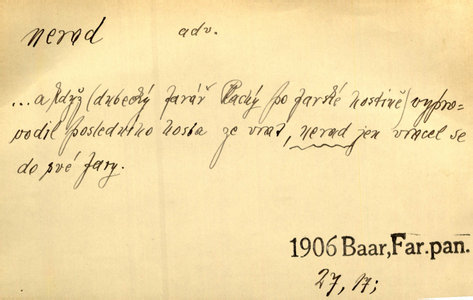 nerad adv.
...a když (dubecký farář Plachý po farské hostině) vypro-
vodil posledního hosta ze vrat, nerad jen vracel se
do své fary.
1906 Baar, Far. pan.
27, 17;